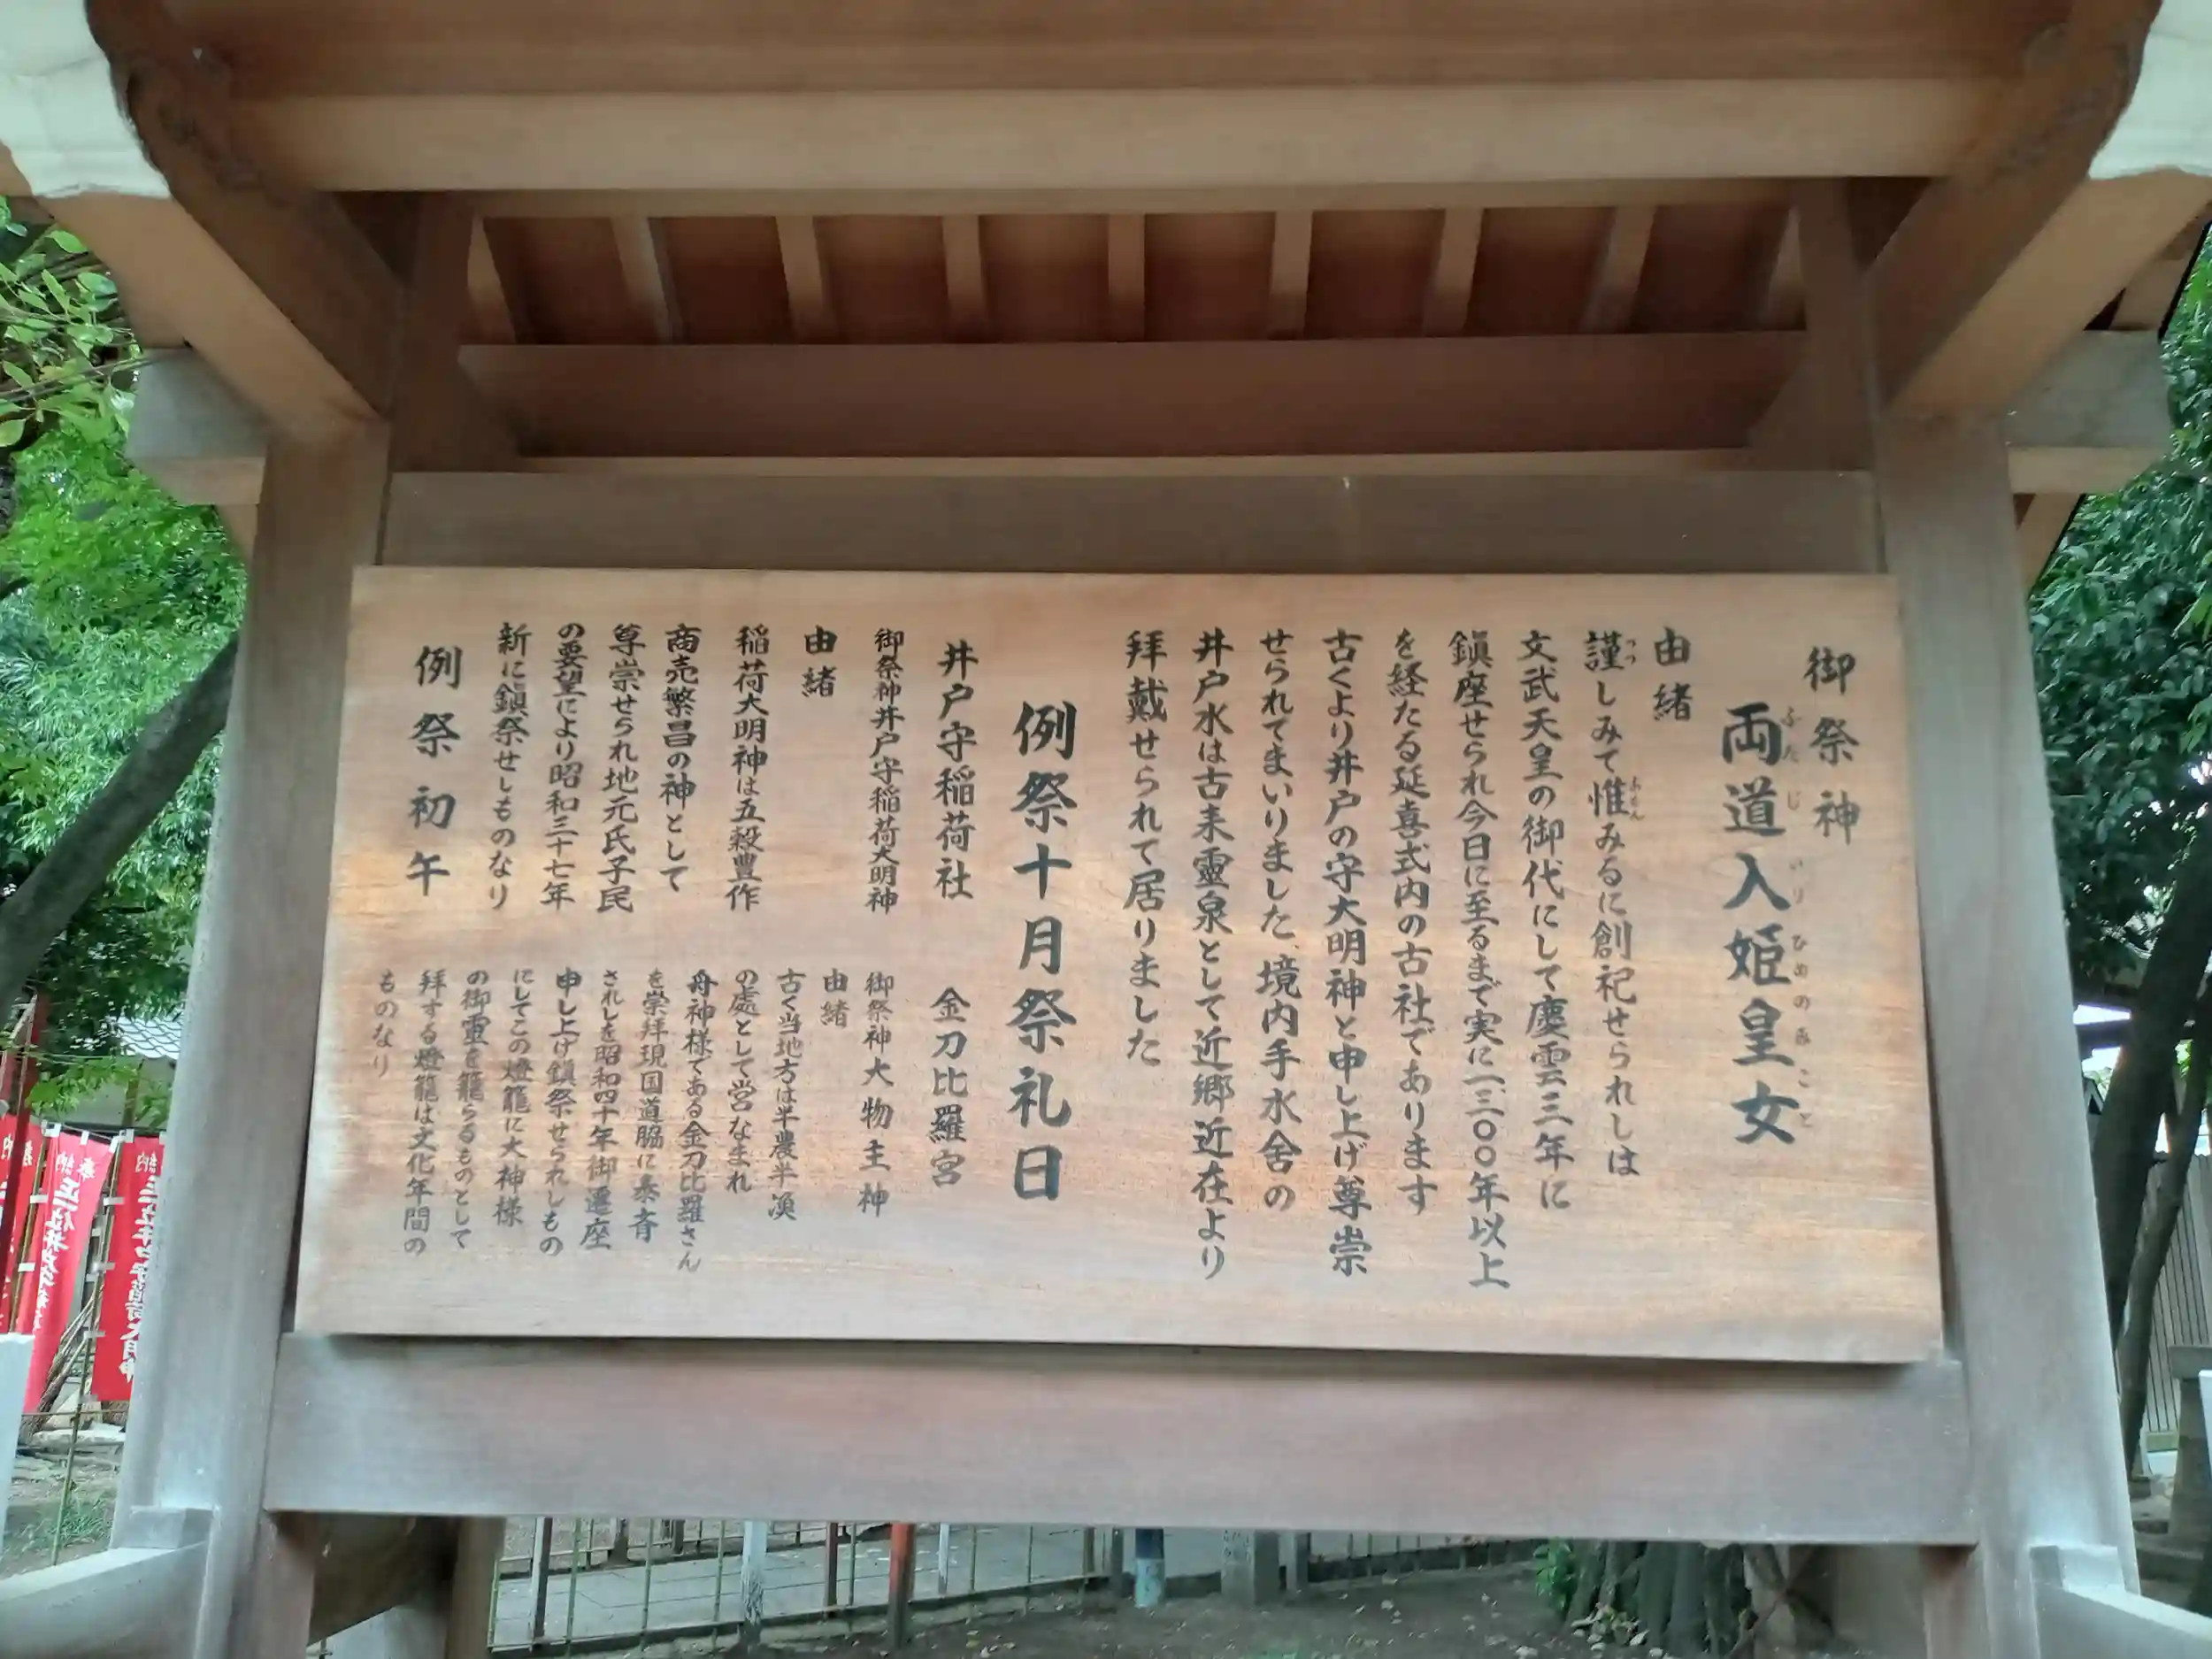 御祭神
両道入姫皇女
由緒
謹しみて惟みるに創祀せられしは
文武天皇の御代にして慶雲三年に
鎮座せられ今日に至るまで実に一、三〇〇年以上
を経たる延喜式内の古社であります
古くより井戸の守大明神と申し上げ尊崇
せられてまいりました、境内手水舎の
井戸水は古来霊泉として近郷近在より
拝戴せられて居りました
例祭十月祭礼日
井戸守稲荷社
御祭神井戸守稲荷大明神
由緒
稲荷大明神は五穀豊作
商売繁昌の神として
尊崇せられ地元氏子民
の要望により昭和三十七年
新に鎮祭せしものなり
例祭初午
金刀比羅宮
御祭神大物主神
由緒
古く当地方は半農半漁
の處として営なまれ
舟神様である金刀比羅さん
を崇拝現国道脇に奉斉
されしを昭和四十年御遷座
申し上げ鎮祭せられしもの
にしてこの燈籠に大神様
の御霊を籠らるものとして
拝する燈籠は文化年間の
ものなり